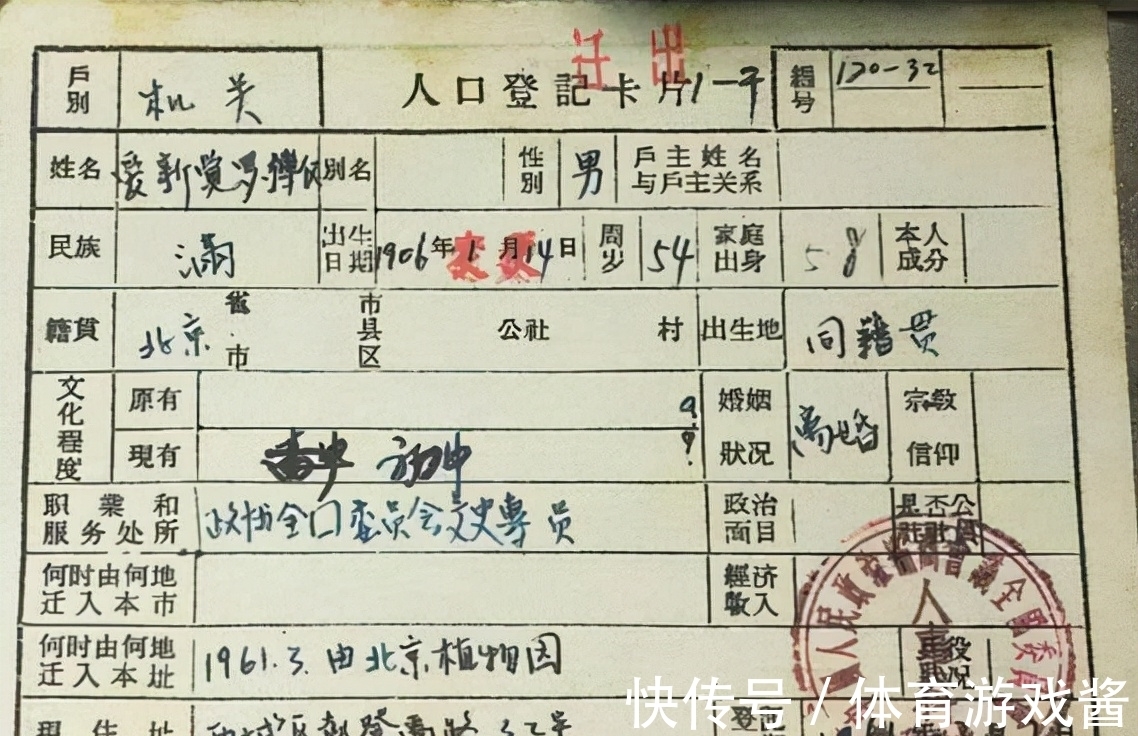 迁出
戶別 机关 人口登記卡片 1-平 編号 120-32
姓名 爱新覚罗 別名 性別 男 戶主姓名与戶主关系
民族 满 出生日期 1906年1月14日 周岁 54 家庭出身 58 本人成分
变更
籍貫 北京 省市 市县区 公社 村 出生地 同籍贯
文化程度 原有 婚姻狀况 离婚 宗教信仰
現有 初中
职業和服务处所 政协全囗委员会文史專员 政治面目 是否公社社員
何时由何地迁入本市 經济收入
何时由何地迁入本址 1961.3.由北京植物园 役况
現住址
人民政治協商會議全國委員
快传号/体育游戏酱